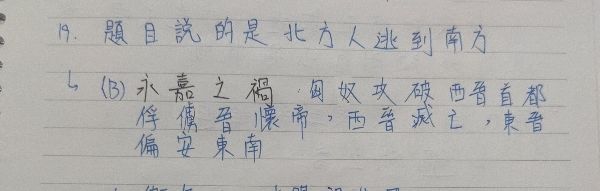 19. 題目說的是北方人逃到南方
↳ (B) 永嘉之禍:匈奴攻破西晉首都
俘虜晉懷帝,西晉滅亡,東晉
偏安東南